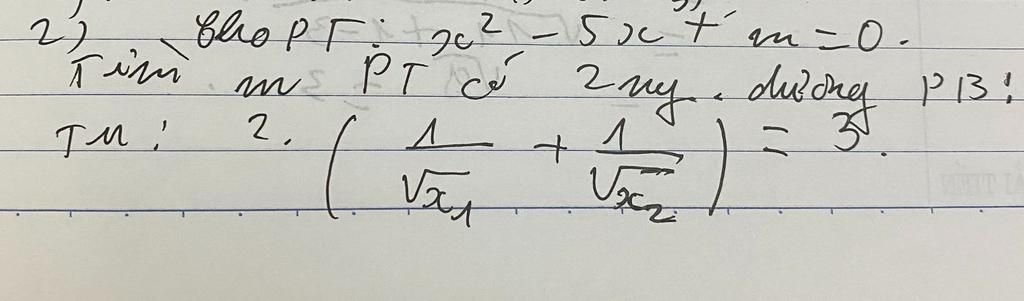 2) Cho PT: x² - 5x + m = 0.
Tìm m PT có 2 ng. dương PB:
TM: 2. (1/√x₁ + 1/√x₂) = 3.